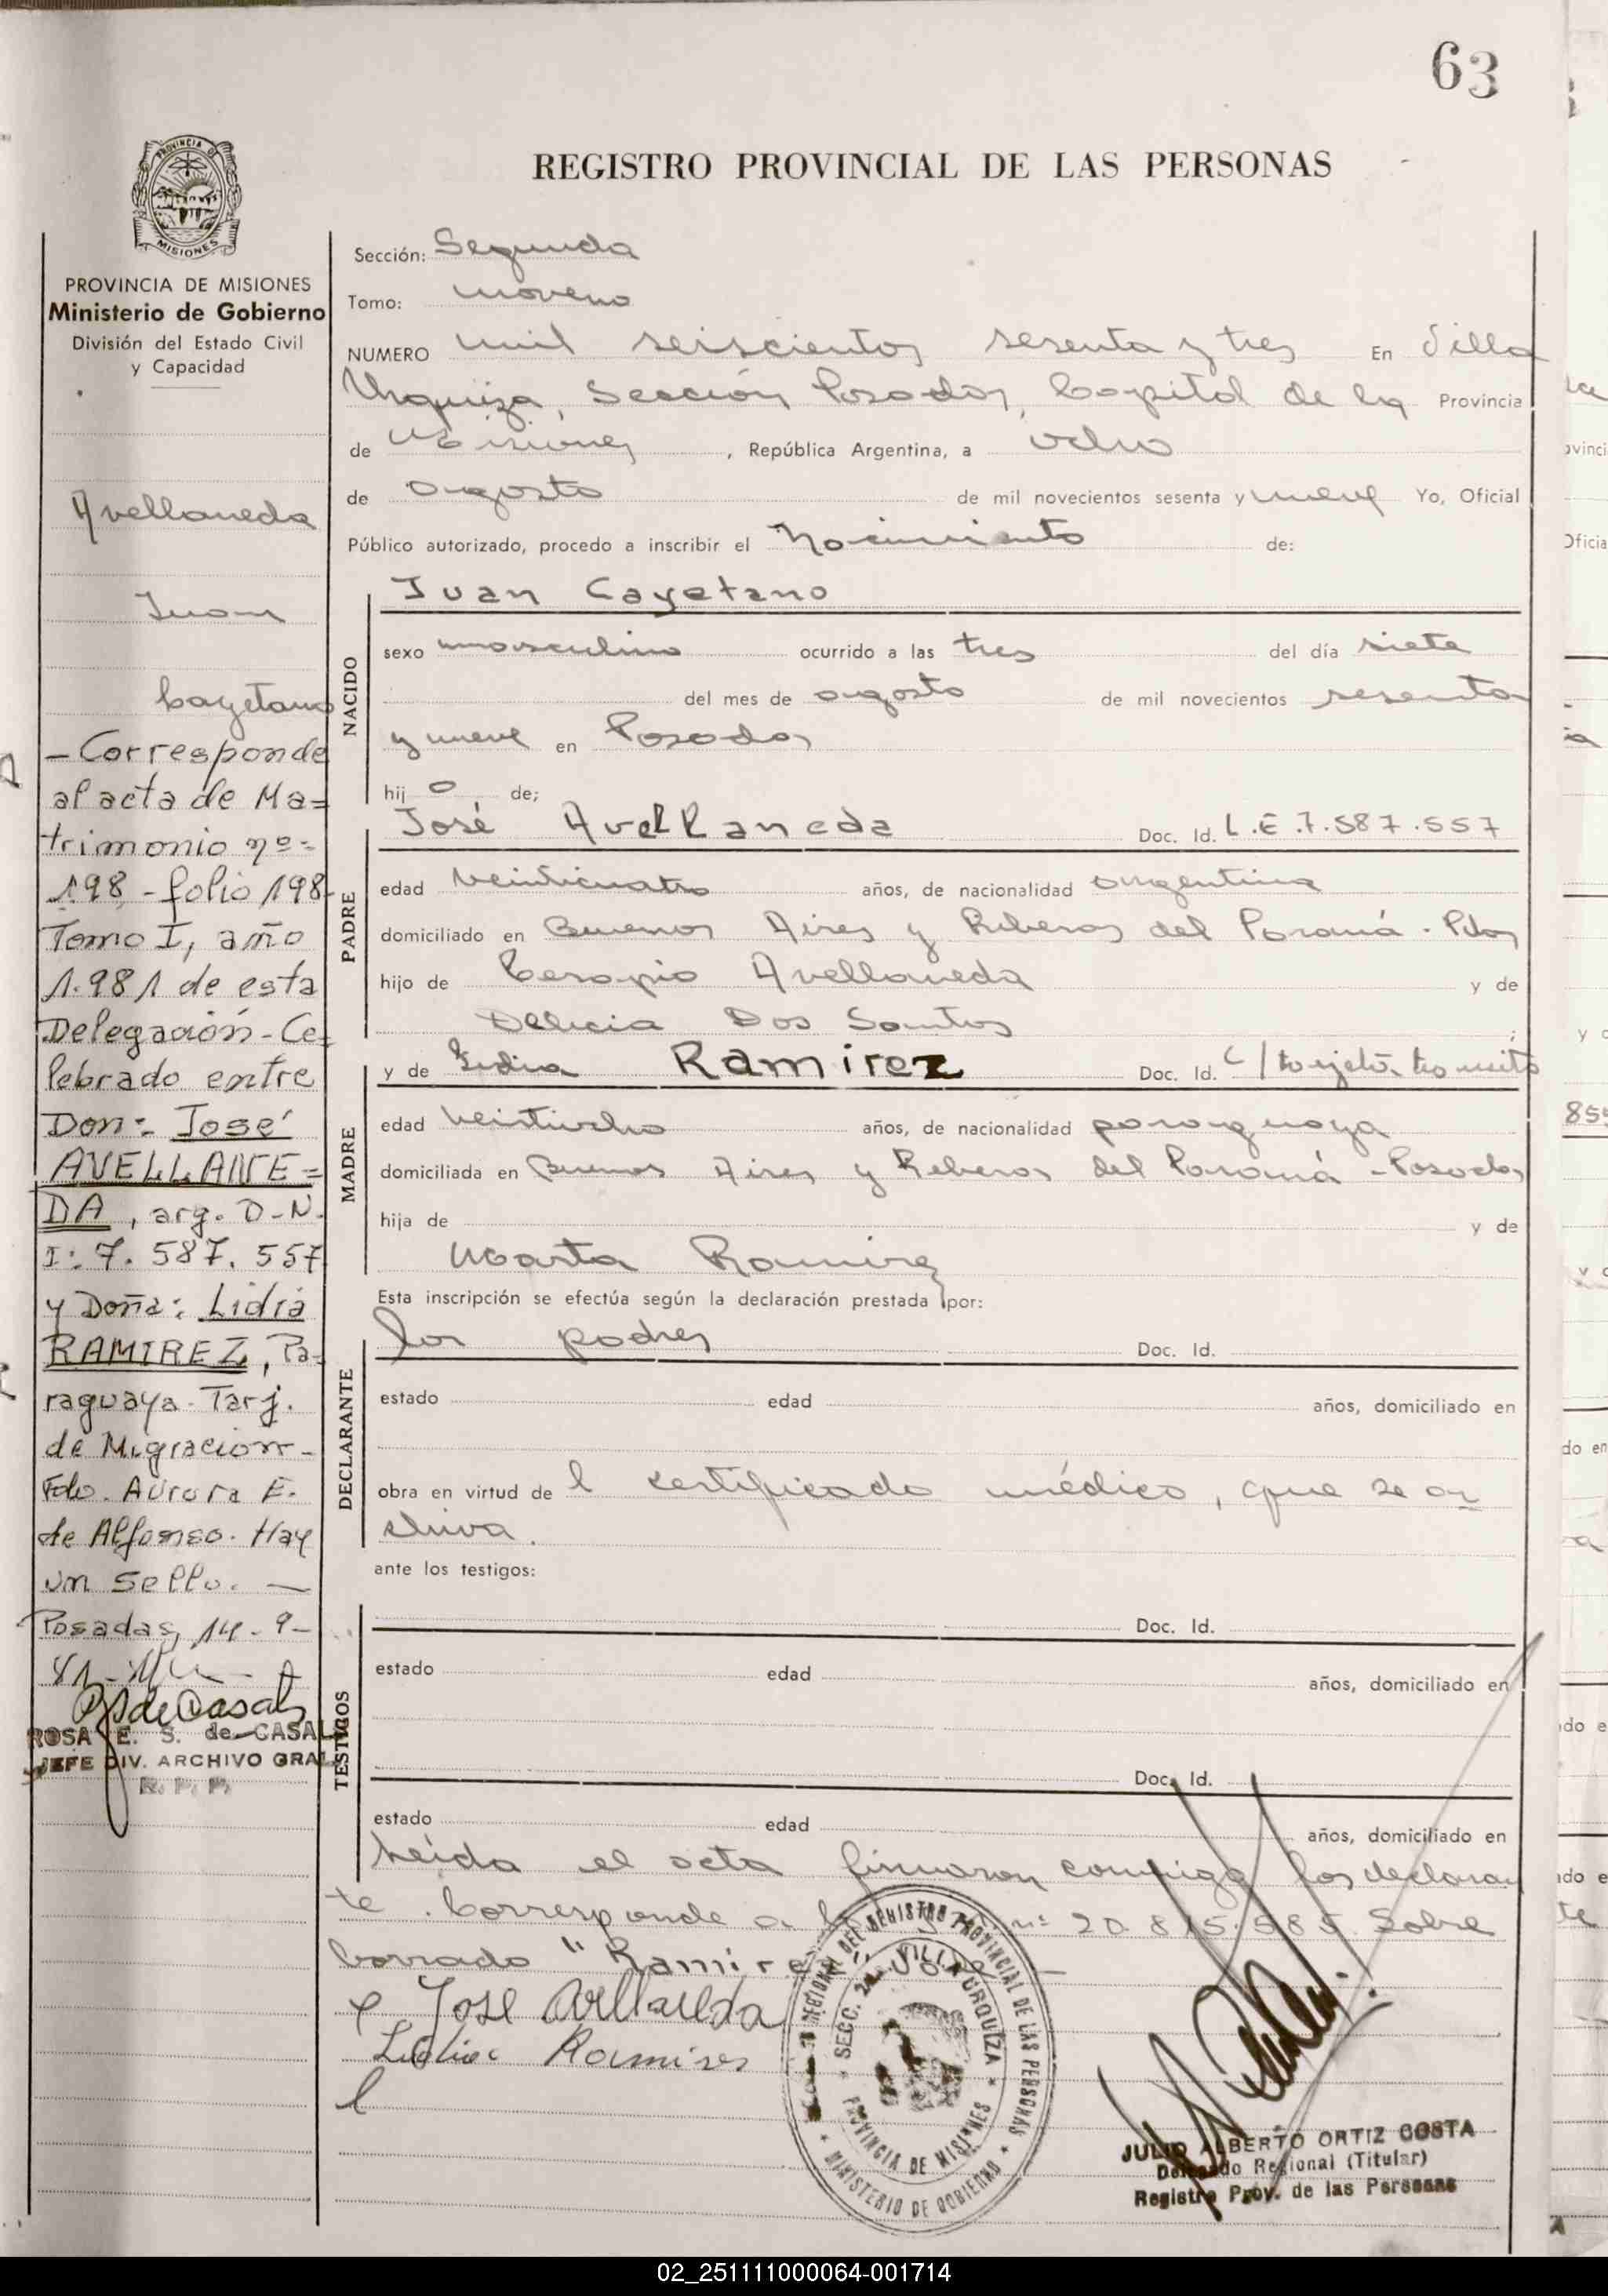 63
REGISTRO PROVINCIAL DE LAS PERSONAS
PROVINCIA DE
MISIONES
PROVINCIA DE MISIONES
Ministerio de Gobierno
División del Estado Civil
y Capacidad
Avellaneda
Juan
Cayetano
- Corresponde
al acta de Ma=
trimonio nº=
198 - folio 198
Tomo I, año
1.981 de esta
Delegación - Ce=
lebrado entre
Don: José
AVELLANE=
DA, arg. D.N.
I: 7.587.557
y Doña: Lidia
RAMIREZ, Pa-
raguaya. Tarj.
de Migración -
Fdo. Aurora E.
de Alfonso. Hay
un sello. —
Posadas, 14-9-
81-
ROSA E. S. de CASALS
JEFE DIV. ARCHIVO GRAL
R. P. P.
Sección: Segunda
Tomo: noveno
NUMERO mil seiscientos sesenta y tres En Villa
Urquiza, Sección Posadas, Capital de la Provincia
de Misiones, República Argentina, a ocho
de agosto de mil novecientos sesenta y nueve Yo, Oficial
Público autorizado, procedo a inscribir el Nacimiento de:
NACIDO
Juan Cayetano
sexo masculino ocurrido a las tres del día siete
del mes de agosto de mil novecientos sesenta
y nueve en Posadas
hijo de;
PADRE
José Avellaneda Doc. Id. L.E.7.587.557
edad veinticuatro años, de nacionalidad argentina
domiciliado en Buenos Aires y Riberas del Paraná - Pdas
hijo de Avellaneda y de
Delicia Dos Santos ;
MADRE
y de Lidia Ramirez Doc. Id. C/ tarjeta tránsito
edad veintiocho años, de nacionalidad paraguaya
domiciliada en Buenos Aires y Riberas del Paraná - Posadas
hija de y de
Marta Ramirez
Esta inscripción se efectúa según la declaración prestada por:
DECLARANTE
los padres Doc. Id.
estado edad años, domiciliado en
obra en virtud del certificado médico, que se ar
chiva.
ante los testigos:
TESTIGOS
Doc. Id.
estado edad años, domiciliado en
Doc. Id.
estado edad años, domiciliado en
Leída el acta firmaron conmigo los declaran
te. Corresponde a nº 20.815.585. Sobre
borrado "Ramirez" Vale —
Jose Avellaneda
Lidia Ramires
REGIONAL DEL REGISTRO PROVINCIAL DE LAS PERSONAS
SECC. 2a VILLA URQUIZA
PROVINCIA DE MISIONES
MINISTERIO DE GOBIERNO
JULIO ALBERTO ORTIZ COSTA
Delegado Regional (Titular)
Registro Prov. de las Personas
02_251111000064-001714